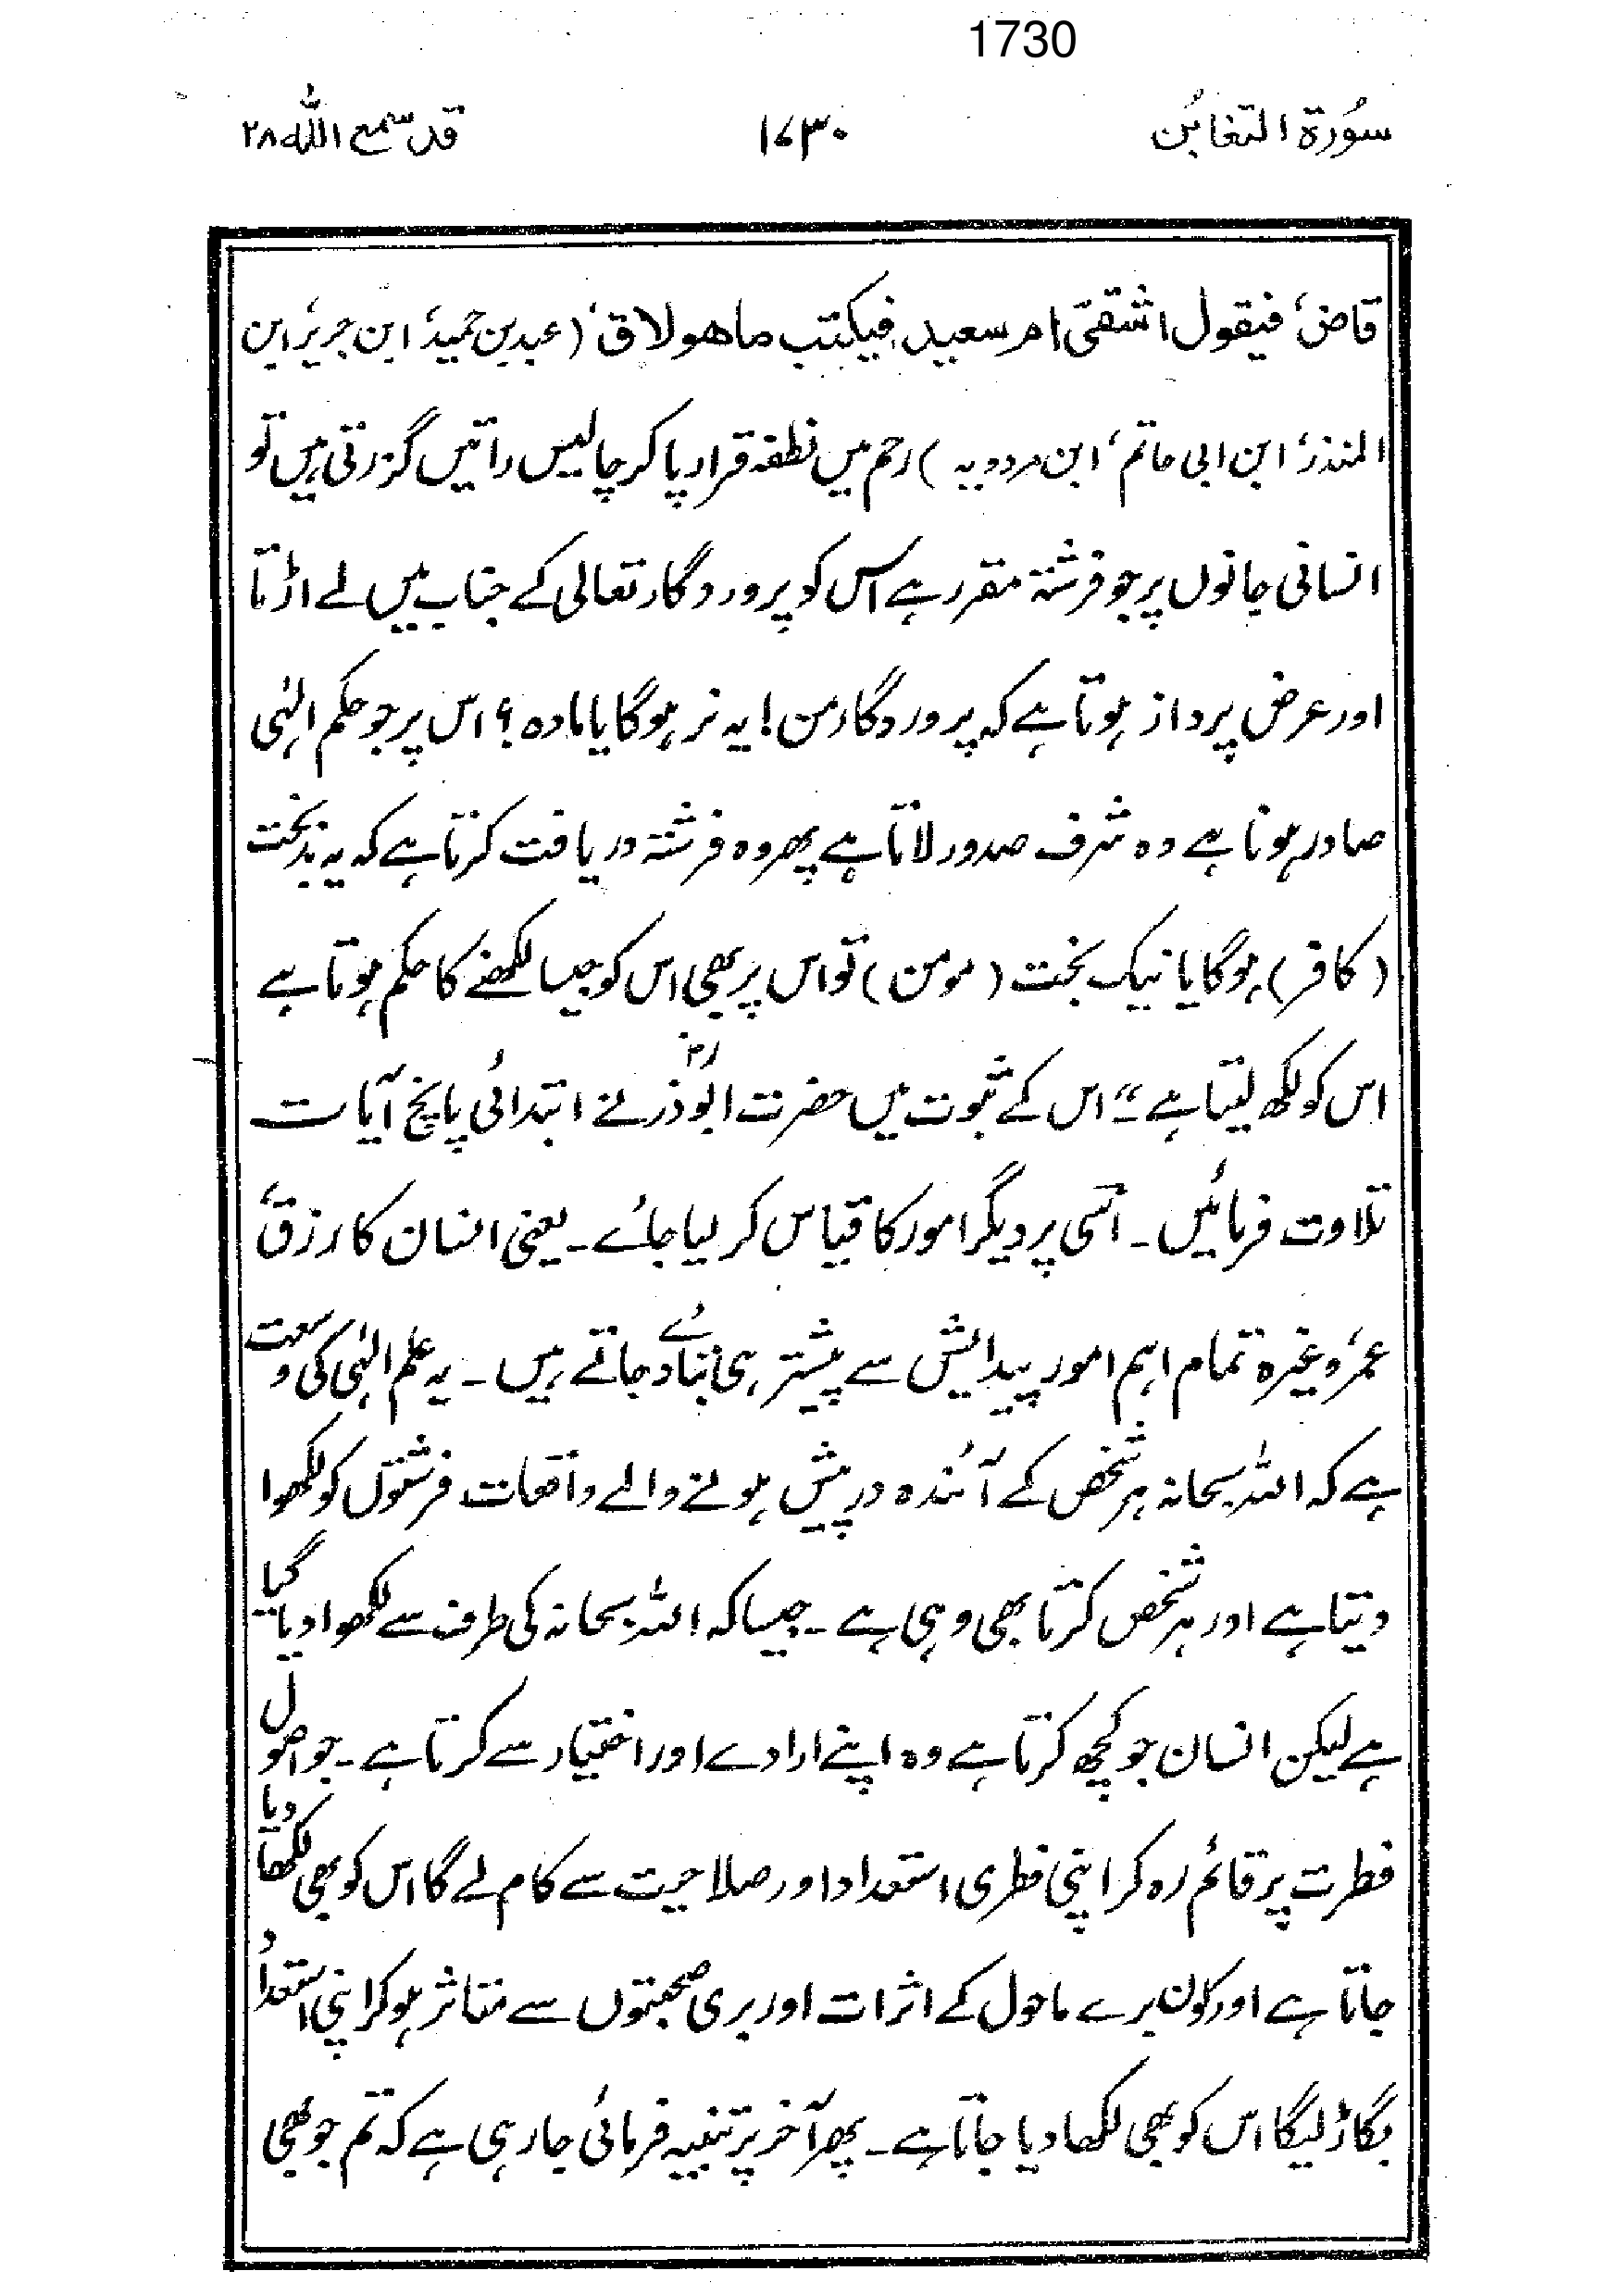 1730
سُورۃ التغابُن ۱۷۳۰ قد سمع اللّٰہ ۲۸
قاضٍ، فیقول اشقیٌ ام سعید، فیکتب ما ھو لاق، (عبد بن حمید، ابن جریر، ابن
المنذر، ابن ابی حاتم، ابن مردویہ) رحم میں نطفہ قرار پا کر چالیس راتیں گزرتی ہیں تو
انسانی جانوں پر جو فرشتہ مقرر ہے اس کو پروردگار تعالی کے جناب میں لے اڑتا
اور عرض پرداز ہوتا ہے کہ پروردگار من! یہ نر ہوگا یا مادہ؟ اس پر جو حکم الہٰی
صادر ہوتا ہے وہ شرف صدور لاتا ہے پھر وہ فرشتہ دریافت کرتا ہے کہ یہ بدبخت
(کافر) ہوگا یا نیک بخت (مومن) تو اس پر بھی اس کو جیسا لکھنے کا حکم ہوتا ہے
اس کو لکھ لیتا ہے۔" اس کے ثبوت میں حضرت ابوذرؓ نے ابتدائی پانچ آیات
تلاوت فرمائیں۔ اسی پر دیگر امور کا قیاس کر لیا جائے۔ یعنی انسان کا رزق،
عمر، وغیرہ تمام اہم امور پیدایش سے پیشتر ہی بتا دئے جاتے ہیں۔ یہ علم الہٰی کی وسعت
ہے کہ اللہ سبحانہ ہر شخص کے آئندہ درپیش ہونے والے واقعات فرشتوں کو لکھوا
دیتا ہے اور ہر شخص کرتا بھی وہی ہے۔ جیسا کہ اللہ سبحانہ کی طرف سے لکھوا دیا گیا
ہے لیکن انسان جو کچھ کرتا ہے وہ اپنے ارادے اور اختیار سے کرتا ہے۔ جو اصول
فطرت پر قائم رہ کر اپنی فطری استعداد اور صلاحیت سے کام لے گا اس کو بھی لکھا دیا
جاتا ہے اور کون برے ماحول کے اثرات اور بری صحبتوں سے متاثر ہو کر اپنی استعداد
بگاڑ لیگا اس کو بھی لکھا دیا جاتا ہے۔ پھر آخر پر تنبیہ فرمائی جا رہی ہے کہ تم جو بھی